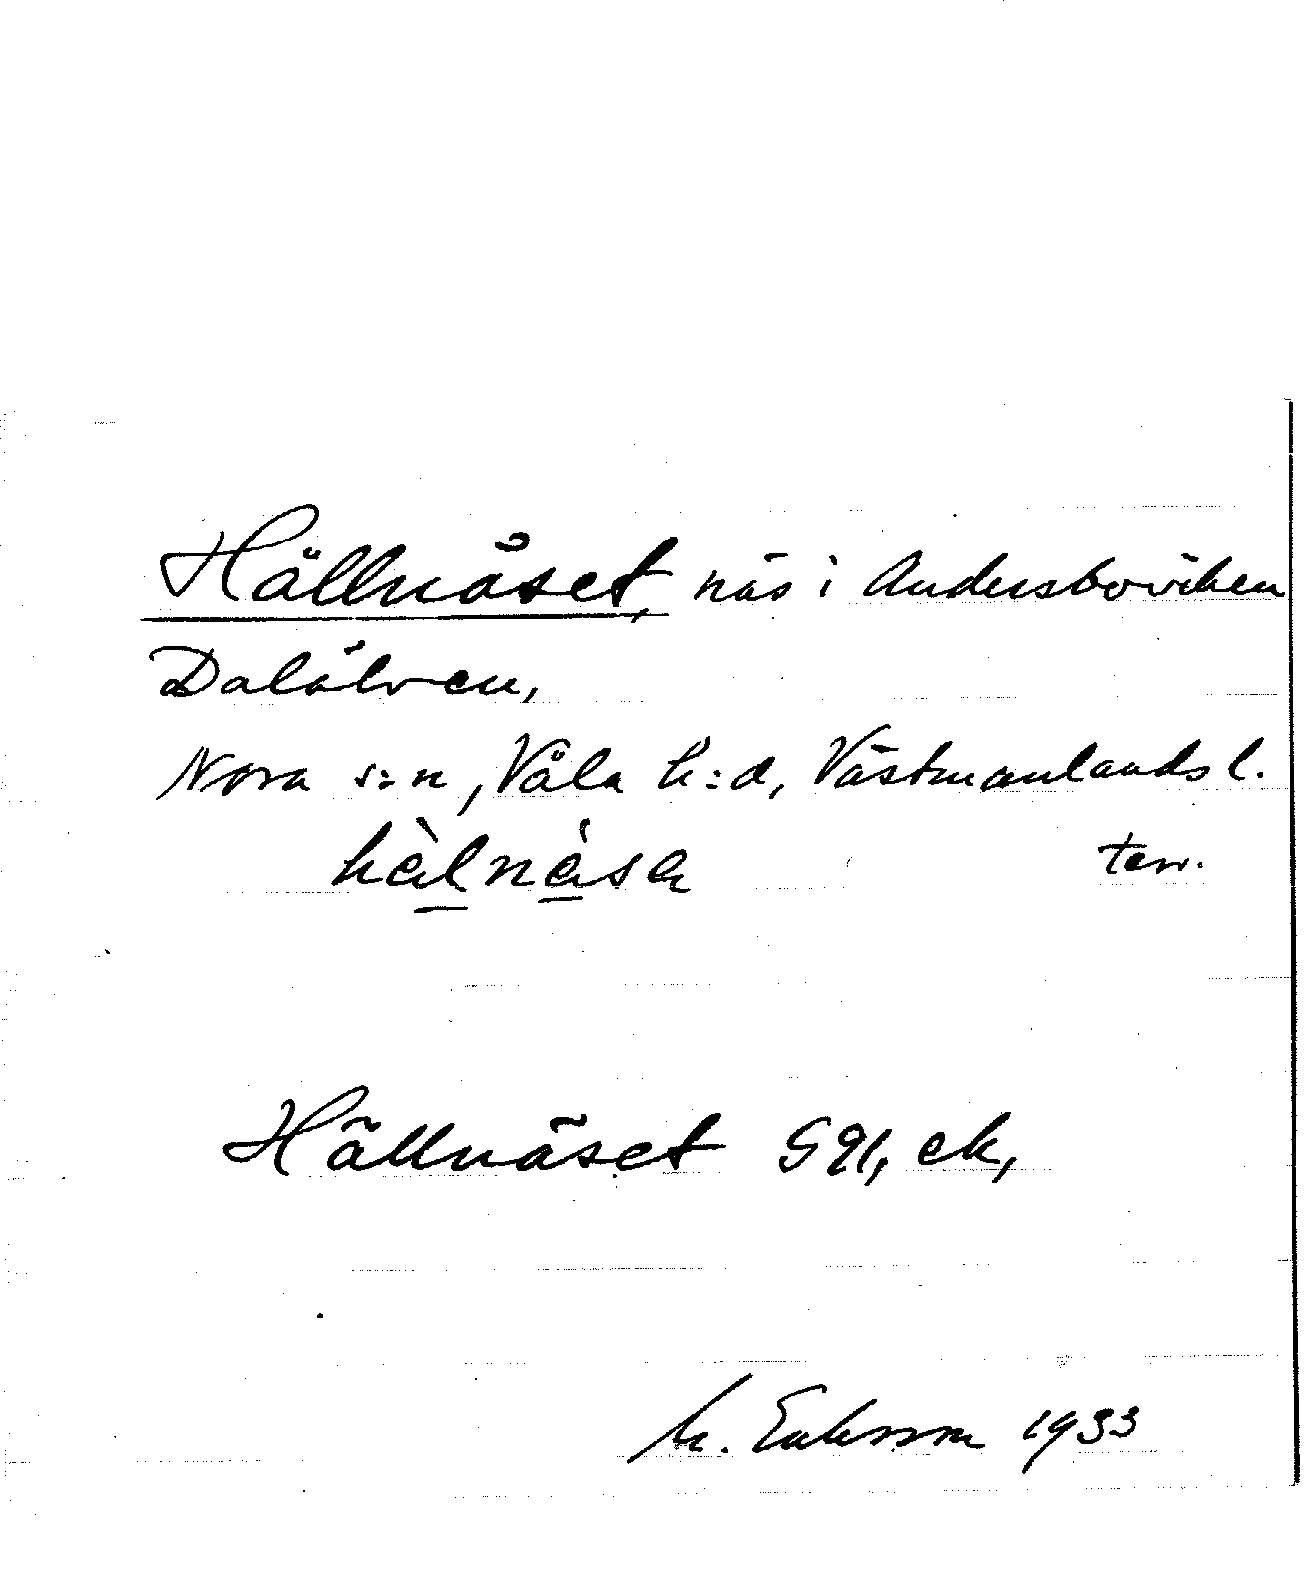 Hällnäset, näs i Andersboviken
Dalälven,
Nora s:n, Våla h:d, Västmanlands l.
hä̀lnä̀sa terr.
Hällnäset GQ, ek,
M. Eriksson 1933